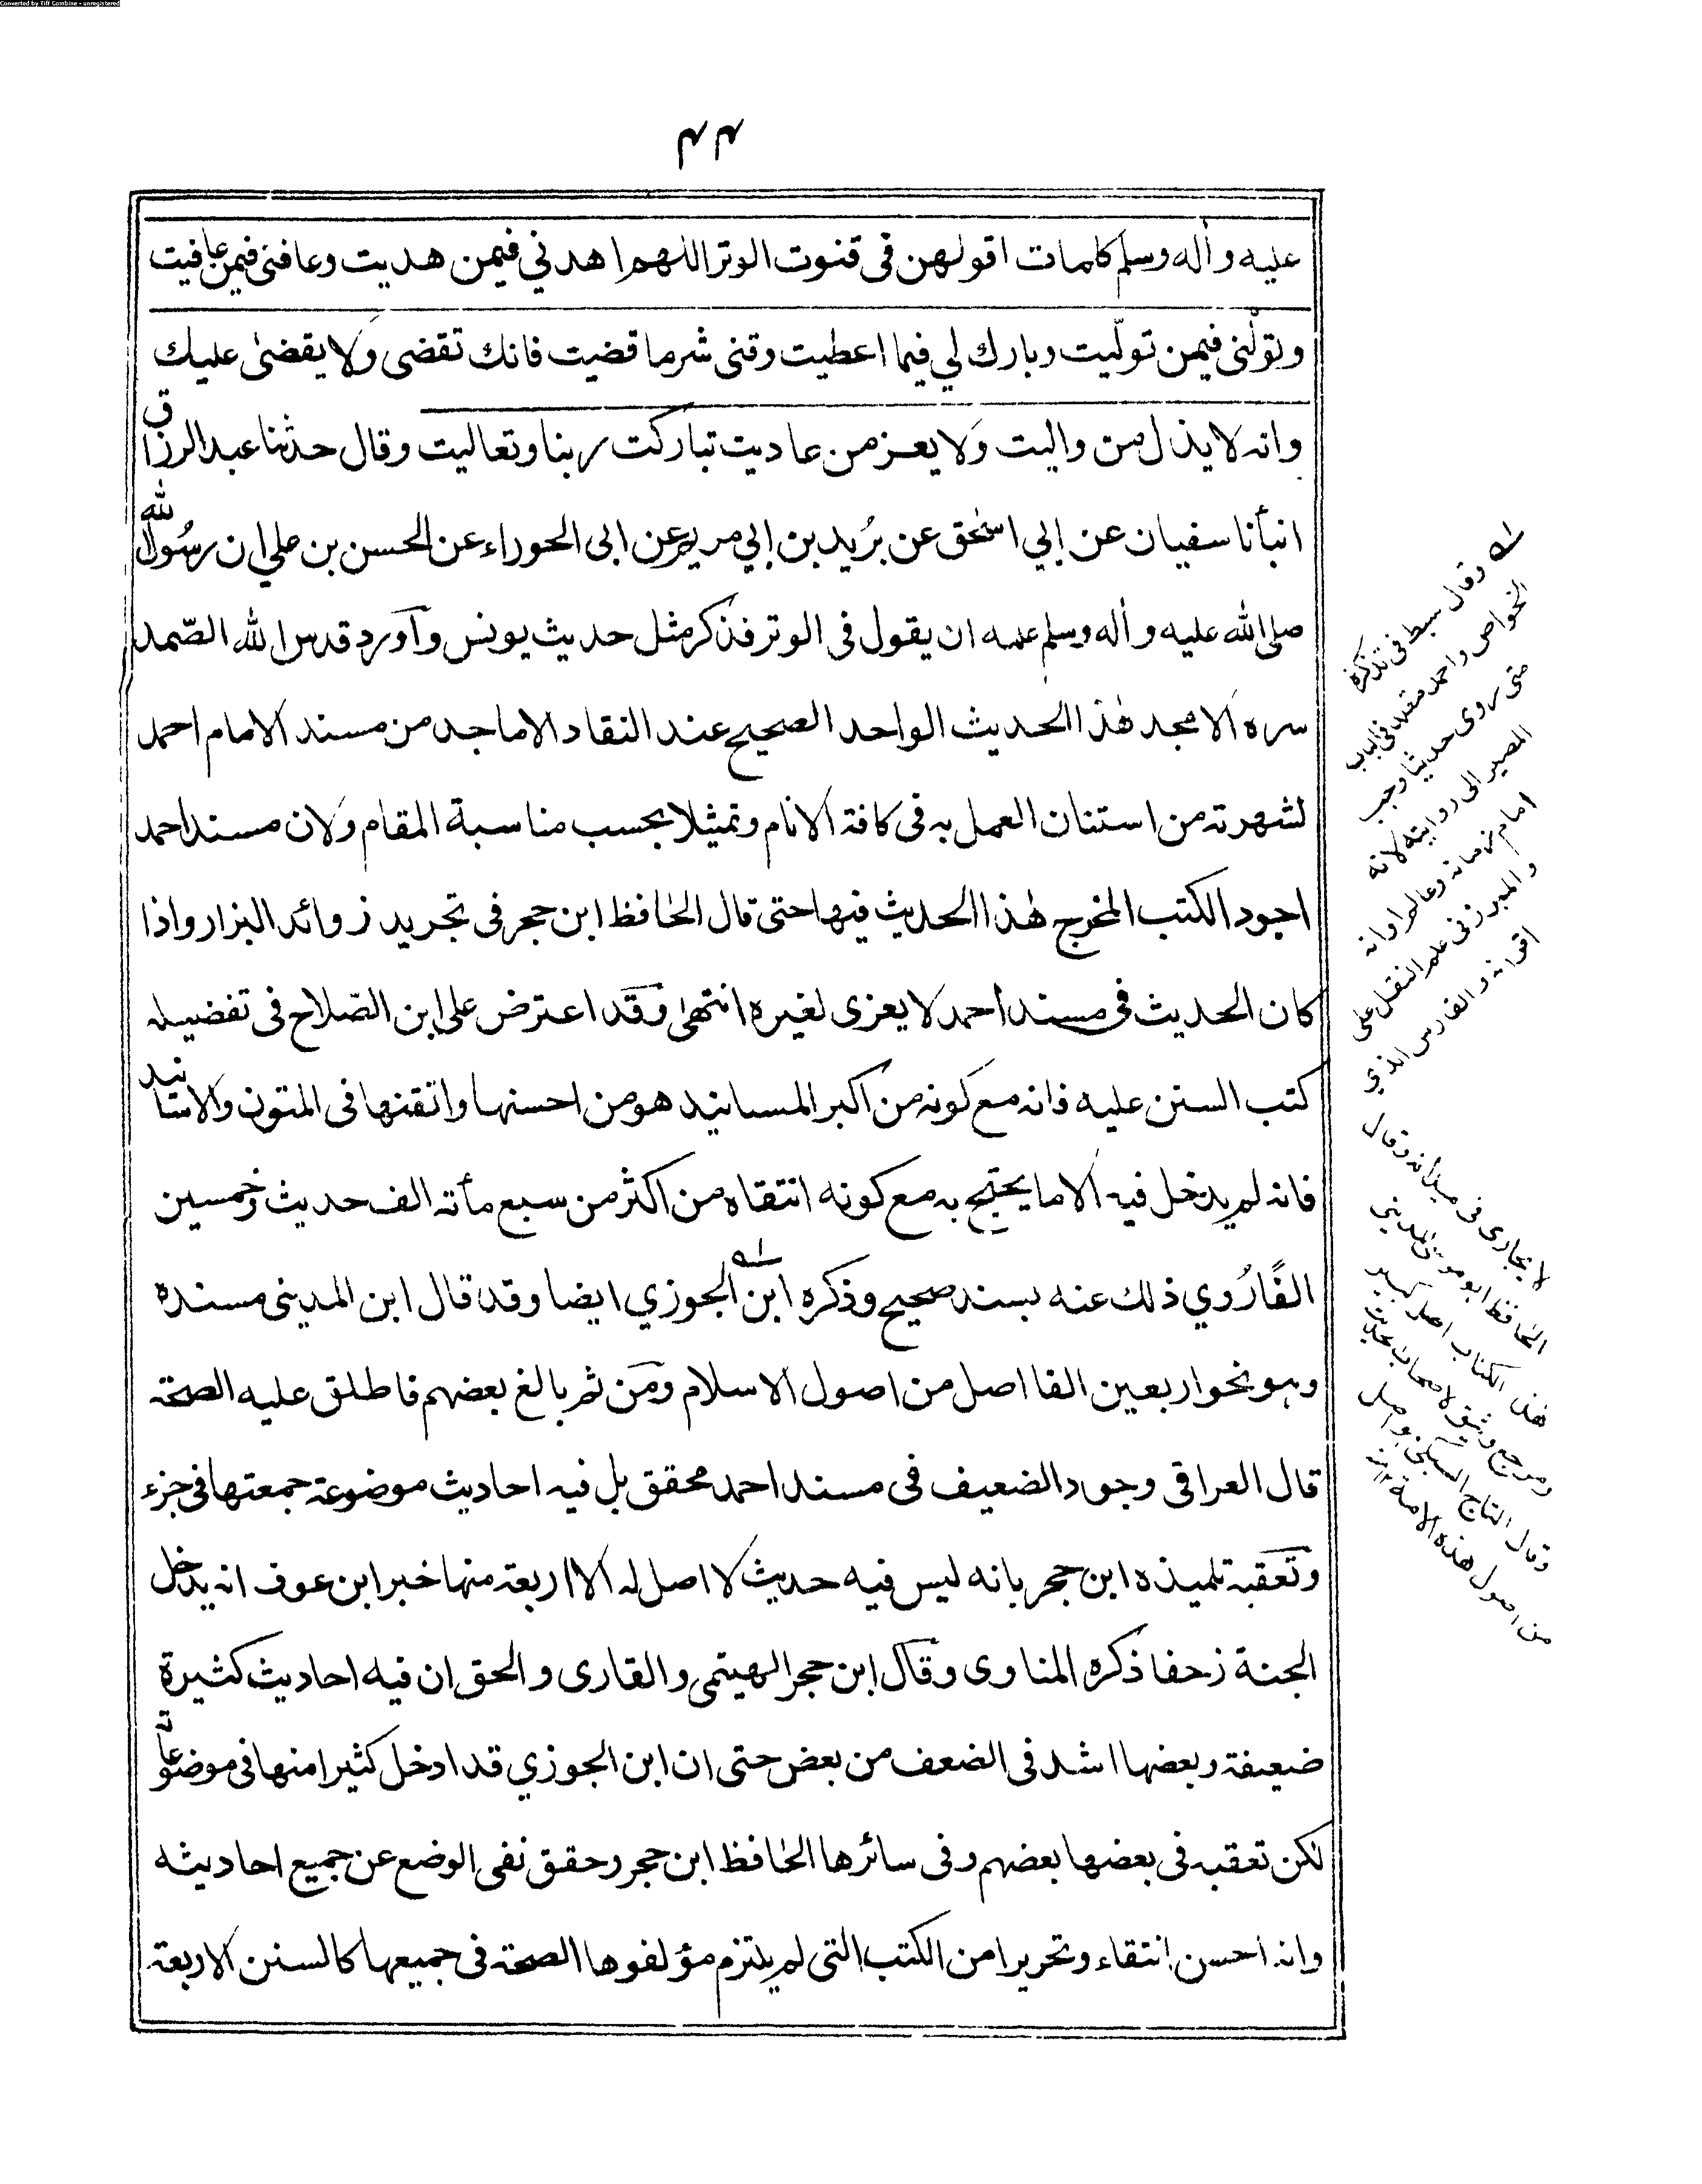 Converted by Tiff Combine - unregistered
عليه وأله وسلم كلمات اقولهن فى قنوت الوتر اللهم اهدني فيمن هديت وعافنى فيمن عافيت
وتولّنى فيمن تولّيت وبارك لي فيما اعطيت وقنى شر ما قضيت فانك تقضى ولا يقضىٰ عليك
وانه لا يذل من واليت ولا يعز من عاديت تباركت ربنا وتعاليت وقال حدثنا عبد الرزاق
انبأنا سفيان عن إبي اسحٰق عن بُريد بن إبي مريم عن ابى الحوراء عن الحسن بن علي ان رسُول الله
صلى الله عليه وأله وسلم علمه ان يقول فى الوتر فذكر مثل حديث يونس وآورد قدس الله الصّمد
سره الامجد هٰذا الحديث الواحد الصحيح عند النقاد الاماجد من مسند الامام احمد
لشهرته من استنان العمل به فى كافة الانام وتمثيلا بحسب مناسبة المقام ولان مسند احمد
اجود الكتب المخرج لهٰذا الحديث فيها حتى قال الحافظ ابن حجر فى تجريد زوائد البزار واذا
كان الحديث فى مسند أحمد لا يعزى لغيره انتهىٰ وقد اعترض على ابن الصّلاح فى تفضيله
كتب السنن عليه فانه مع كونه من أكبر المسانيد هو من احسنها واتقنها فى المتون والاسانيد
فانه لم يدخل فيه الا ما يحتج به مع كونه انتقاه من اكثر من سبع مأته الف حديث وخمسين
الفًا رُوي ذلك عنه بسند صحيح وذكره ابن الجوزي ايضا وقد قال ابن المدينى مسنده
وهو نحو اربعين الفا اصل من اصول الاسلام ومن ثم بالغ بعضهم فاطلق عليه الصحة
قال العراقي وجود الضعيف فى مسند احمد محقق بل فيه احاديث موضوعة جمعتها فى جزء
وتعقبه تلميذه ابن حجر بانه ليس فيه حديث لا اصل له الا اربعة منها خبر ابن عوف انه يدخل
الجنة زحفا ذكره المناوى وقال ابن حجر الهيتمي والقارى والحق ان فيه احاديث كثيرة
ضعيفة وبعضها اشد فى الضعف من بعض حتى ان ابن الجوزي قد ادخل كثيرا منها فى موضوعاته
لكن تعقبه فى بعضها بعضهم وفى سائرها الحافظ ابن حجر وحقق نفى الوضع عن جميع احاديثه
وانه احسن انتقاء وتحريرا من الكتب التى لم يلتزم مؤلفوها الصحة فى جميعها كالسنن الاربعة
وقال سبط فى تذكرة
الخواص واحمد مقلد فى الباب
متى روى حديثا وجب
المصير الى روايته لانه
امام زمانه وعالم اوانه
والمبرز فى علم النقل على
اقرانه والفارس الذي
لا يجارى فى ميدانه وقال
الحافظ ابو موسى المديني
هذا الكتاب اصل كبير
ومرجع وثيق لاصحاب الحديث
وقال التاج السبكي هو اصل
من اصول هذه الامة ١٢ منه